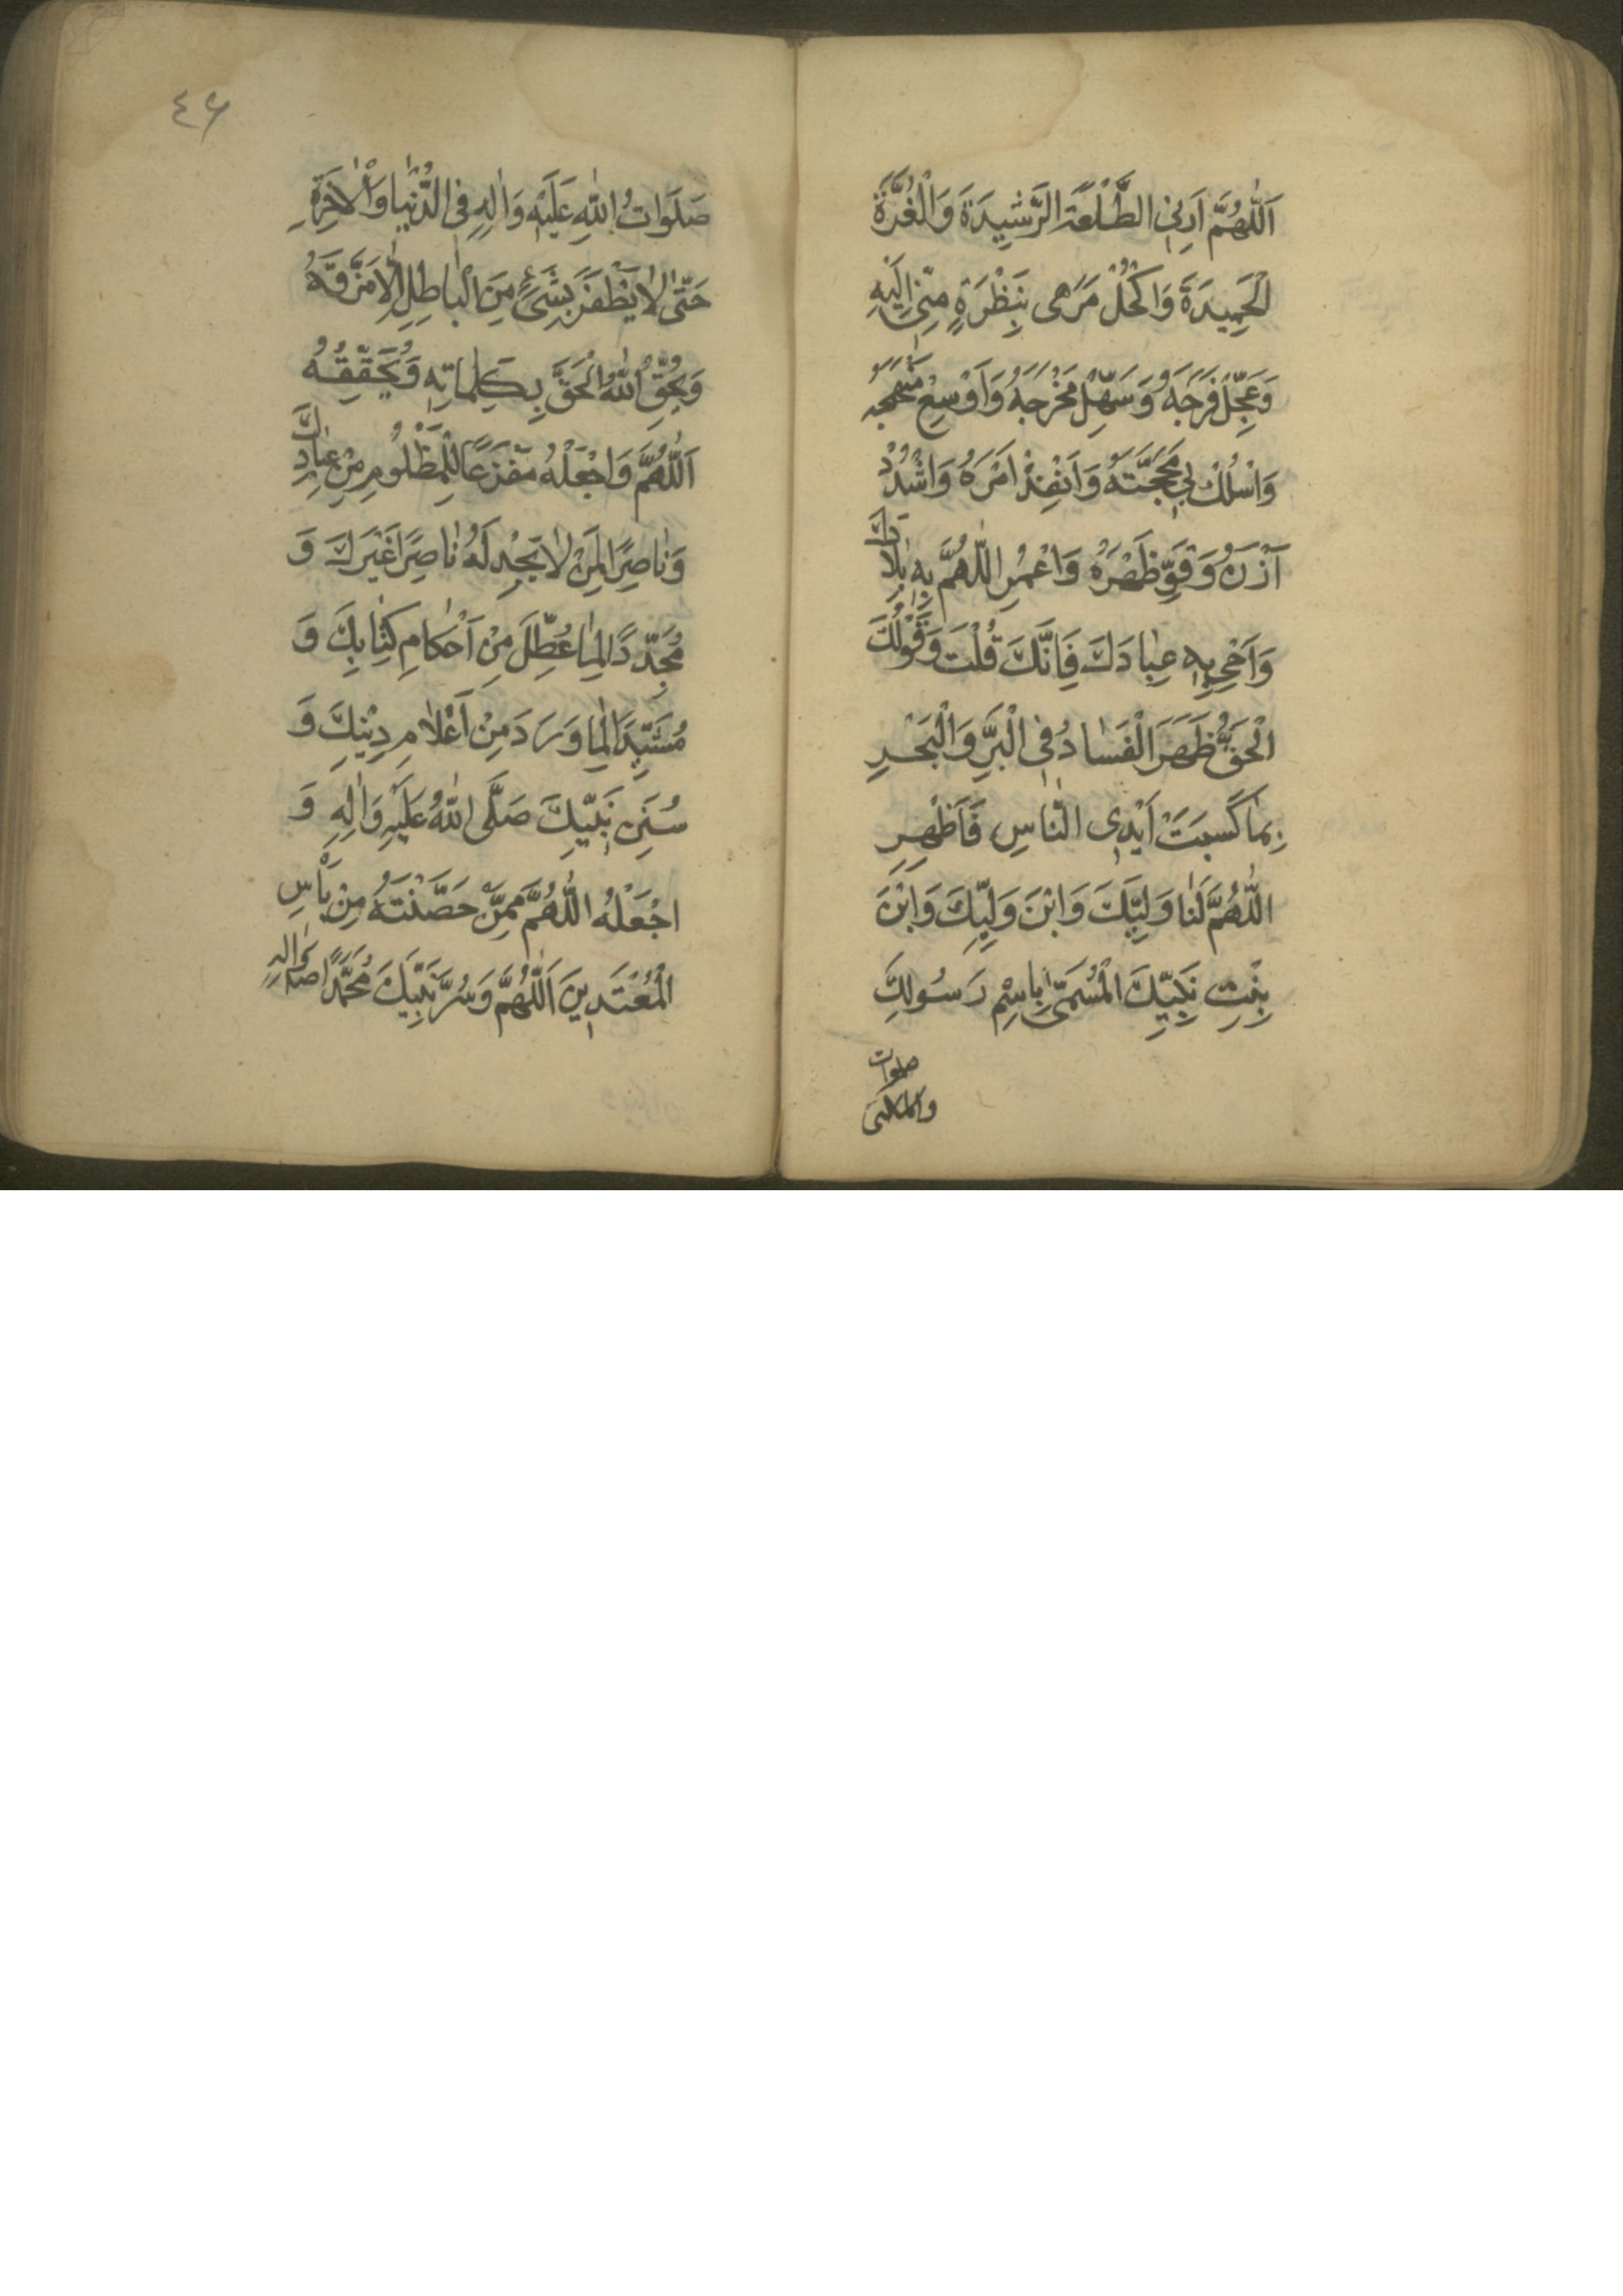 اَللّٰهُمَّ اَرِنِى الطَّلْعَةَ الرَّشِيدَةَ وَالْغُرَّةَ
الْحَمِيدَةَ وَاكْحُلْ مَرَهِى بِنَظْرَةٍ مِنّىِ اِلَيْهِ
وَعَجِّلْ فَرَجَهُ وَسَهِّلْ مَخْرَجَهُ وَاَوْسِعْ مَنْهَجَهُ
وَاسْلُكْ بِى مَحَجَّتَهُ وَاَنْفِذْ اَمْرَهُ وَاشْدُدْ
اَزْرَهُ وَقَوِّ ظَهْرَهُ وَاعْمُرِ اللّٰهُمَّ بِهِ بِلَادَكَ
وَاَحْىِ بِهِ عِبَادَكَ فَاِنَّكَ قُلْتَ وَقَوْلُكَ
الْحَقُّ ظَهَرَ الْفَسٰادُ فِى الْبَرِّ وَالْبَحْرِ
بِمٰا كَسَبَتْ اَيْدِى النّٰاسِ فَاَظْهِرِ
اللّٰهُمَّ لَنٰا وَلِيَّكَ وَابْنَ وَلِيِّكَ وَابْنَ
بِنْتِ نَبِيِّكَ الْمُسَمّىٰ بِاسْمِ رَسُولِكَ
صلوات
٤٦
صَلَوَاتُ اللّٰهِ عَلَيْهِ وَاٰلِهِ فِى الدُّنْيٰا وَالْاٰخِرَةِ
حَتّٰى لاٰ يَظْفَرَ بِشَىْءٍ مِنَ الْبٰاطِلِ اِلّاٰ مَزَّقَهُ
وَيُحِقَّ اللّٰهُ الْحَقَّ بِكَلِمٰاتِهِ وَيُحَقِّقُهُ
اَللّٰهُمَّ وَاجْعَلْهُ مَفْزَعًا لِلْمَظْلُومِ مِنْ عِبٰادِكَ
وَنٰاصِرًا لِمَنْ لاٰ يَجِدُ لَهُ نٰاصِرًا غَيْرَكَ وَ
مُجَدِّدًا لِمٰا عُطِّلَ مِنْ اَحْكٰامِ كِتٰابِكَ وَ
مُشَيِّدًا لِمٰا وَرَدَ مِنْ اَعْلاٰمِ دِيْنِكَ وَ
سُنَنِ نَبِيِّكَ صَلَّى اللّٰهُ عَلَيْهِ وَاٰلِهِ وَ
اجْعَلْهُ اللّٰهُمَّ مِمَّنْ حَصَّنْتَهُ مِنْ بَأْسِ
الْمُعْتَدِينَ اَللّٰهُمَّ وَسُرَّ نَبِيَّكَ مُحَمَّدًا ص وَاٰلِهِ